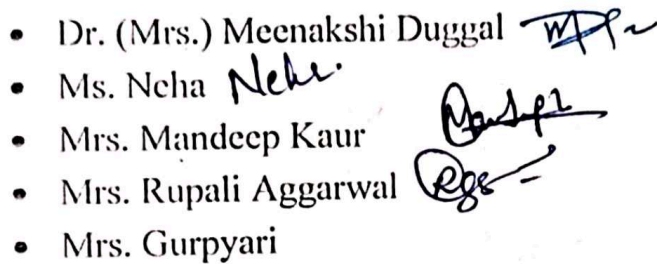 • Dr. (Mrs.) Meenakshi Duggal
• Ms. Neha Neha.
• Mrs. Mandeep Kaur
• Mrs. Rupali Aggarwal
• Mrs. Gurpyari